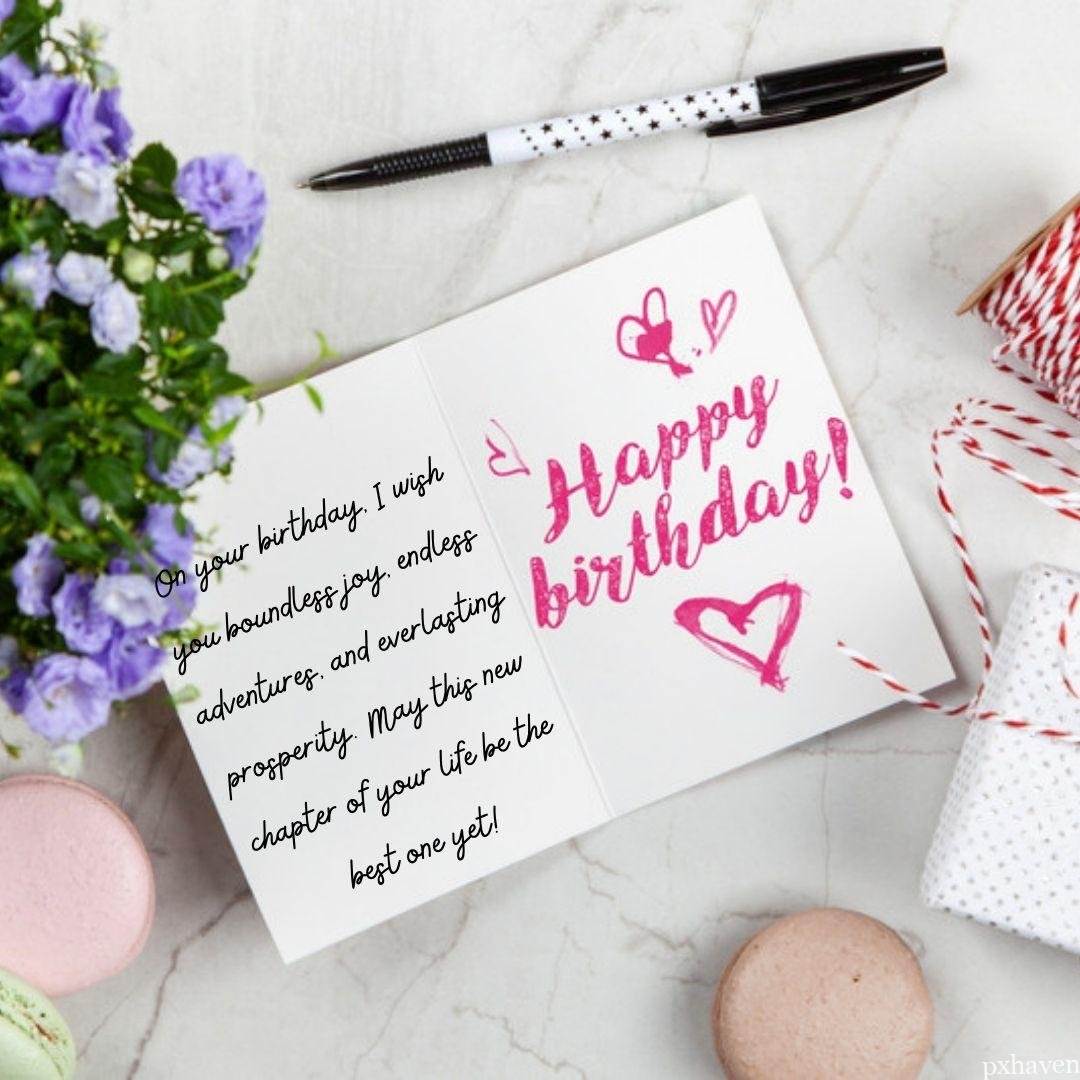 On your birthday, I wish
you boundless joy, endless
adventures, and everlasting
prosperity. May this new
chapter of your life be the
best one yet!
Happy
birthday!
pxhaven